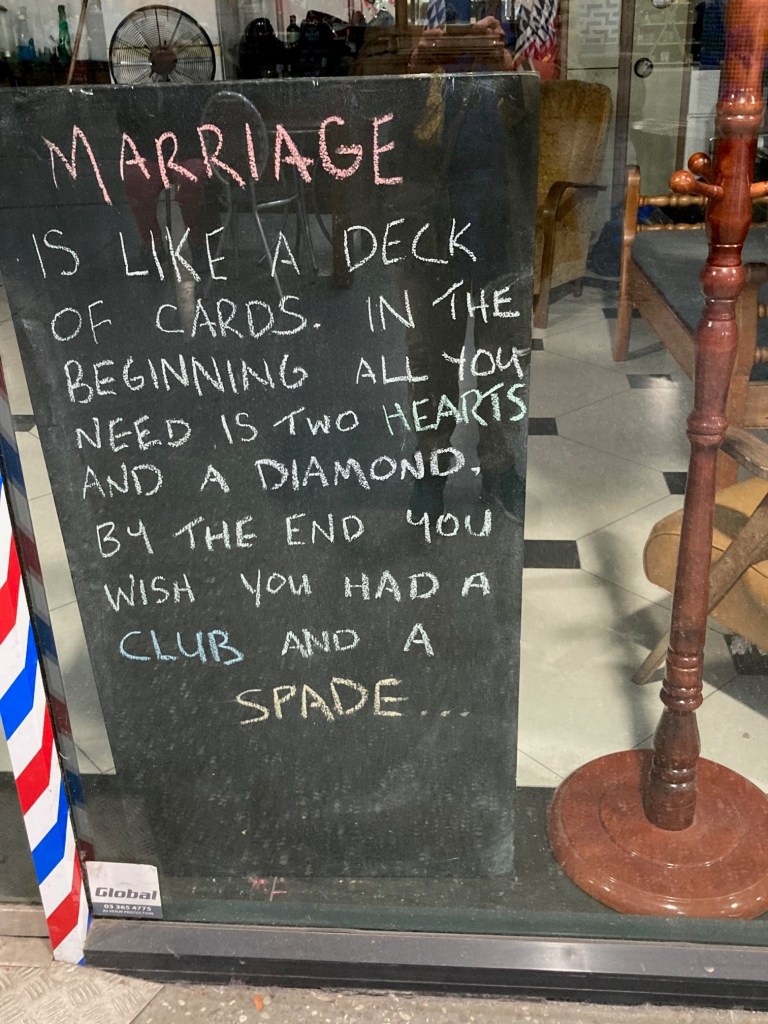 MARRIAGE
IS LIKE A DECK
OF CARDS. IN THE
BEGINNING ALL YOU
NEED IS TWO HEARTS
AND A DIAMOND.
BY THE END YOU
WISH YOU HAD A
CLUB AND A
SPADE...
Global
03 365 4775
24 HOUR PROTECTION